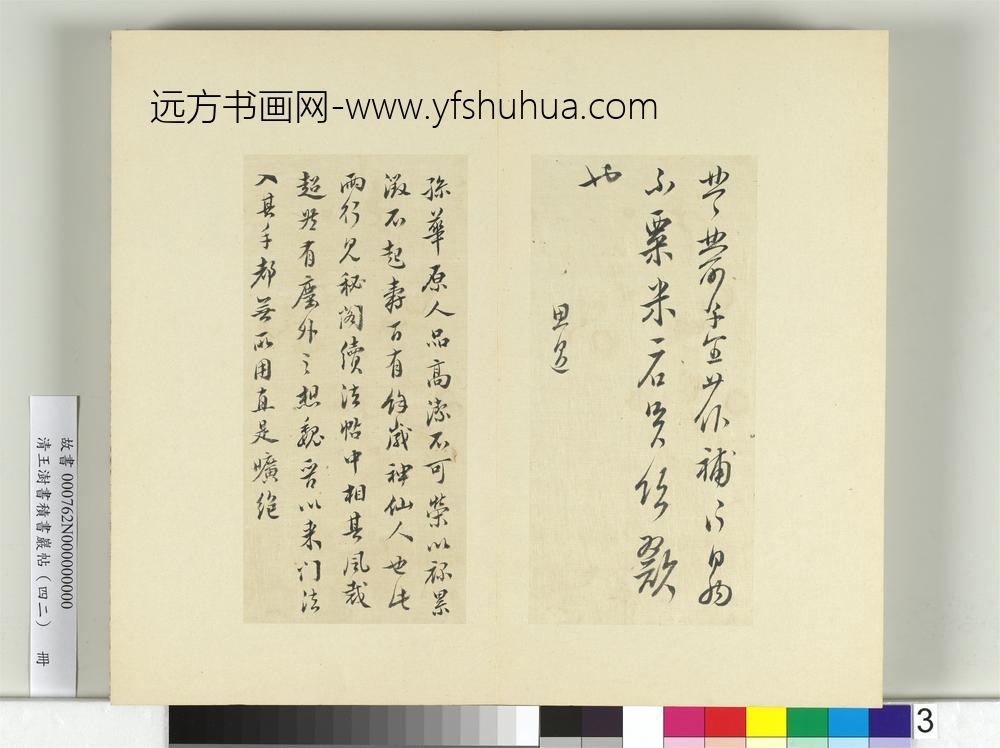 远方书画网-www.yfshuhua.com
補
粟米一石
也
思邈
孫華原人品高潔不可榮以祿累
徵不起壽百有餘歲神仙人也此
兩行見秘閣續法帖中相其風裁
超然有塵外之想魏晉以來門法
入其手都無所用真是曠絕
故書 000762N000000000
清王澍書積書巖帖（四二） 冊
3